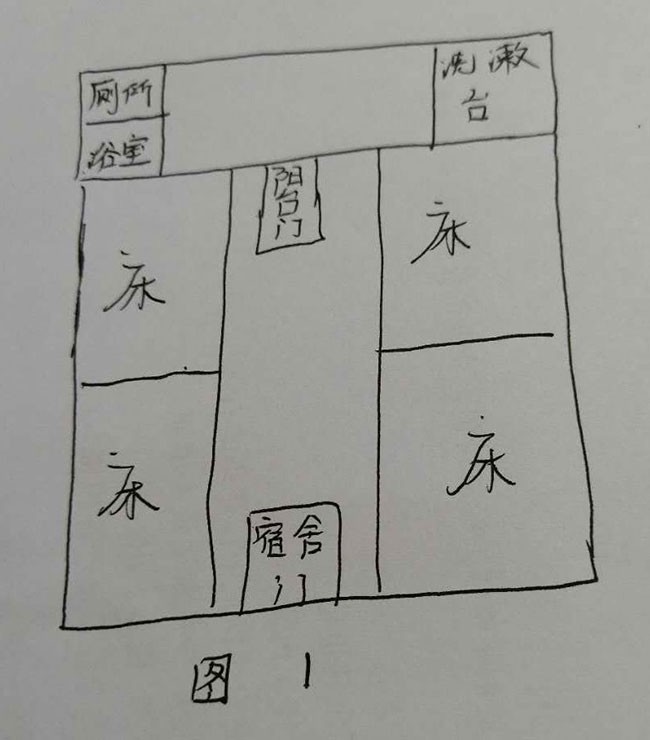 厕所
浴室
洗漱
台
阳
台
门
床
床
床
床
宿舍
门
图 1